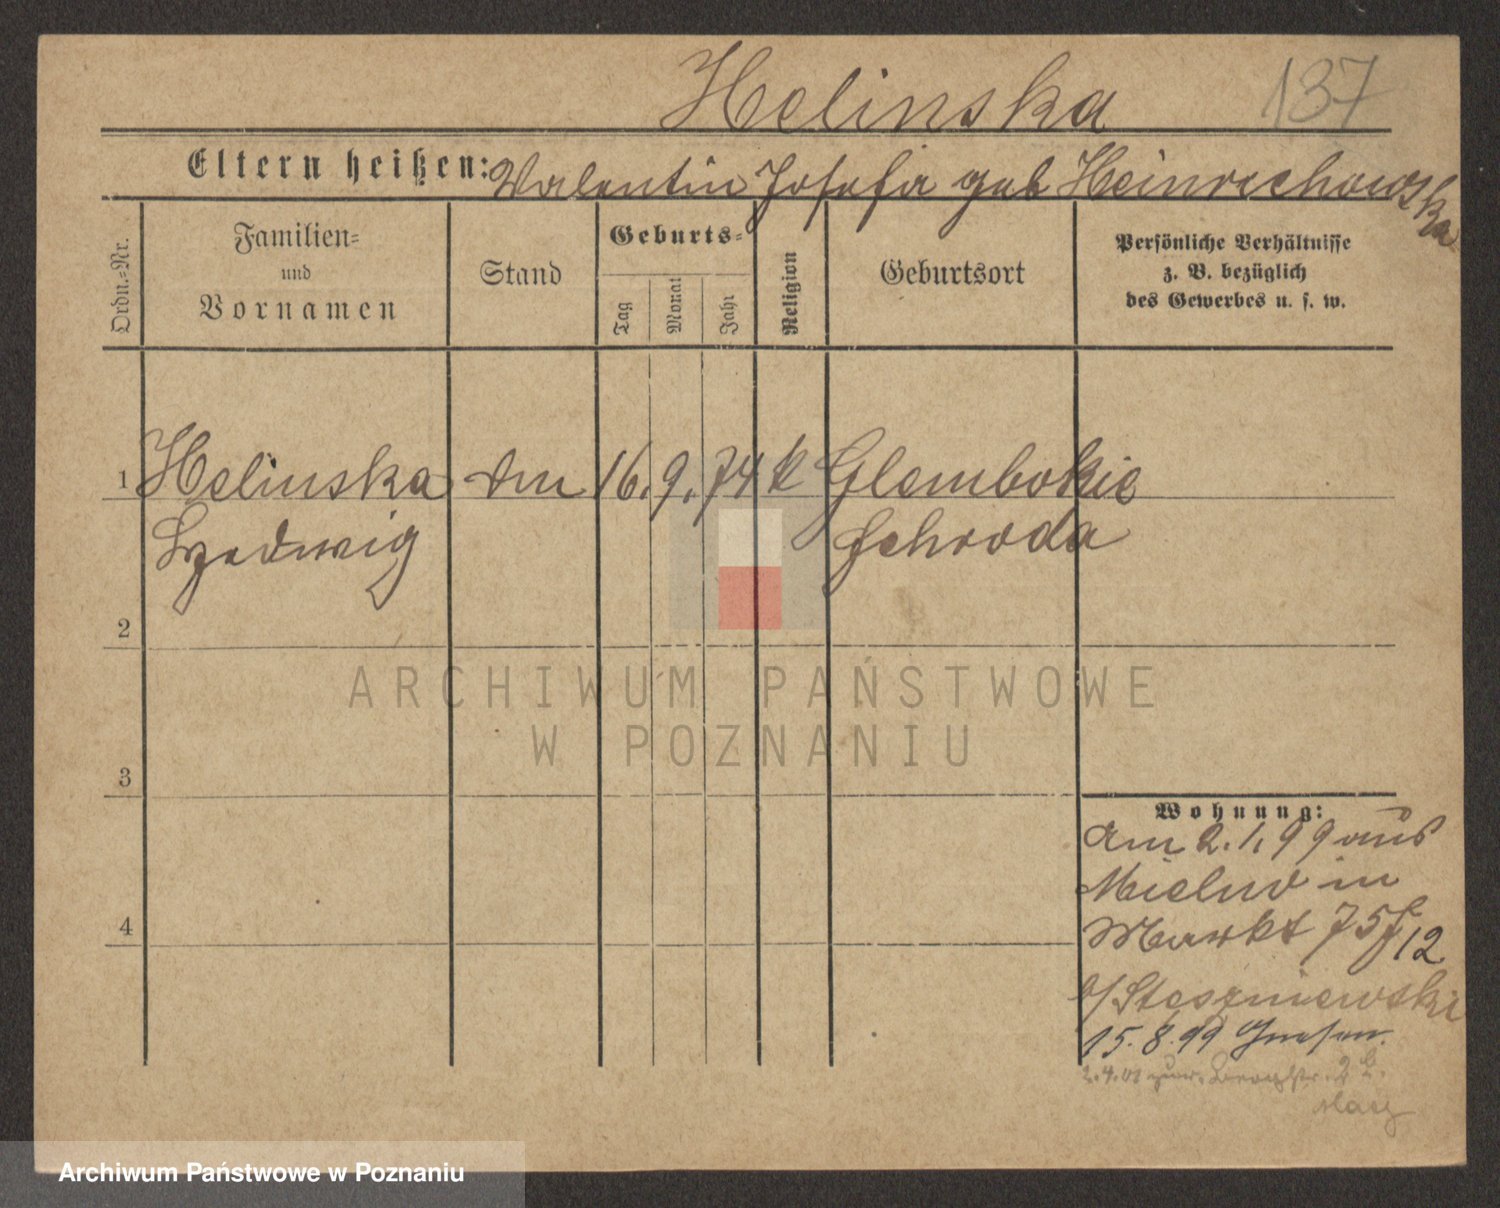 Helinska 137
Eltern heißen: Valentin Josefa geb Heinrichowska
Ordn.-Nr.
Familien-
und
Vornamen
Stand
Geburts-
Tag
Monat
Jahr
Religion
Geburtsort
Persönliche Verhältnisse
z. B. bezüglich
des Gewerbes u. s. w.
1 Helinska Dm 16. 9. 74 k Glembokie
Hedwig Schroda
2
ARCHIWUM PAŃSTWOWE
W POZNANIU
3
Wohnung:
am 2. 1. 99 aus
Mielno in
Markt 75/12
b/Steszniewski
4
15. 8. 99 Gnesen.
2. 4. 01 2
Archiwum Państwowe w Poznaniu